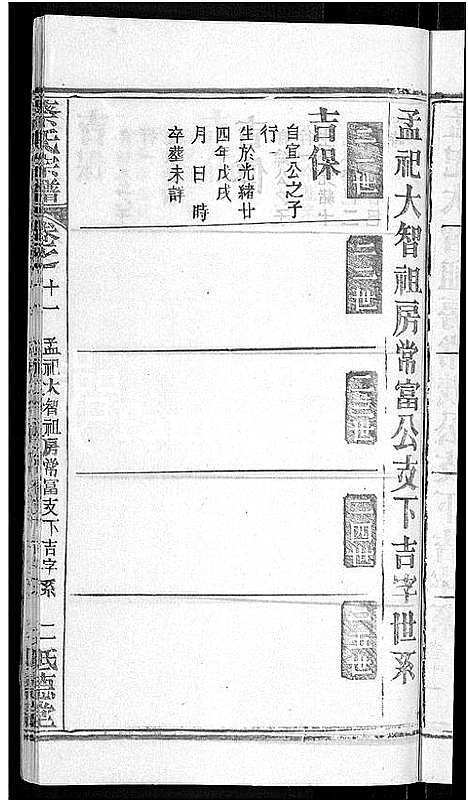 孟祀大智祖房常富公支下吉字世系
吉保
自宣公之子
行一
生於光緒廿
四年戊戌
月日時
卒葬未詳
二三世
二四世
二五世
蔡氏宗譜
卷之
十一
孟祀大智祖房常富支下吉字系
二